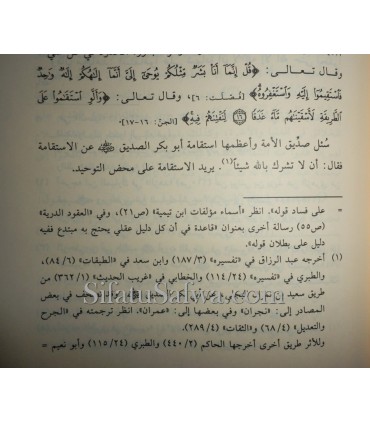 وقال تعالى: ﴿قُلْ إِنَّمَا أَنَا۠ بَشَرٌ مِّثْلُكُمْ يُوحَىٰ إِلَيَّ أَنَّمَا إِلَٰهُكُمْ إِلَٰهٌ وَٰحِدٌ
فَاسْتَقِيمُوا إِلَيْهِ وَاسْتَغْفِرُوهُ﴾ [فصلت: ٦]، وقال تعالى: ﴿وَأَلَّوِ اسْتَقَٰمُوا عَلَى
الطَّرِيقَةِ لَأَسْقَيْنَٰهُم مَّاءً غَدَقًا ١٦ لِنَفْتِنَهُمْ فِيهِ﴾
[الجن: ١٦-١٧].
سُئل صدِّيق الأمة وأعظمها استقامة أبو بكر الصديق عن الاستقامة
فقال: أن لا تشرك بالله شيئاً(١). يريد الاستقامة على محض التوحيد.
= على فساد قوله». انظر «أسماء مؤلفات ابن تيمية» (ص٢١)، وفي «العقود الدرية»
(ص٥٥) رسالة أخرى بعنوان «قاعدة في أن كل دليل عقلي يحتج به مبتدع ففيه
دليل على بطلان قوله».
(١) أخرجه عبد الرزاق في «تفسيره» (١٨٧/٣) وابن سعد في «الطبقات» (٨٤/٦)،
والطبري في «تفسيره» (١١٤/٢٤) والخطابي في «غريب الحديث» (٣٦٢/١) من
طريق سعيد بن في
المصادر إلى: «نجران» وفي بعضها إلى: «عمران». انظر ترجمته في «الجرح
والتعديل» (٦٨/٤) و«الثقات» (٢٨٩/٤).
وللأثر طريق أخرى أخرجها الحاكم (٤٤٠/٢) والطبري (١١٥/٢٤) وأبو نعيم =
SifatuSafwa.com